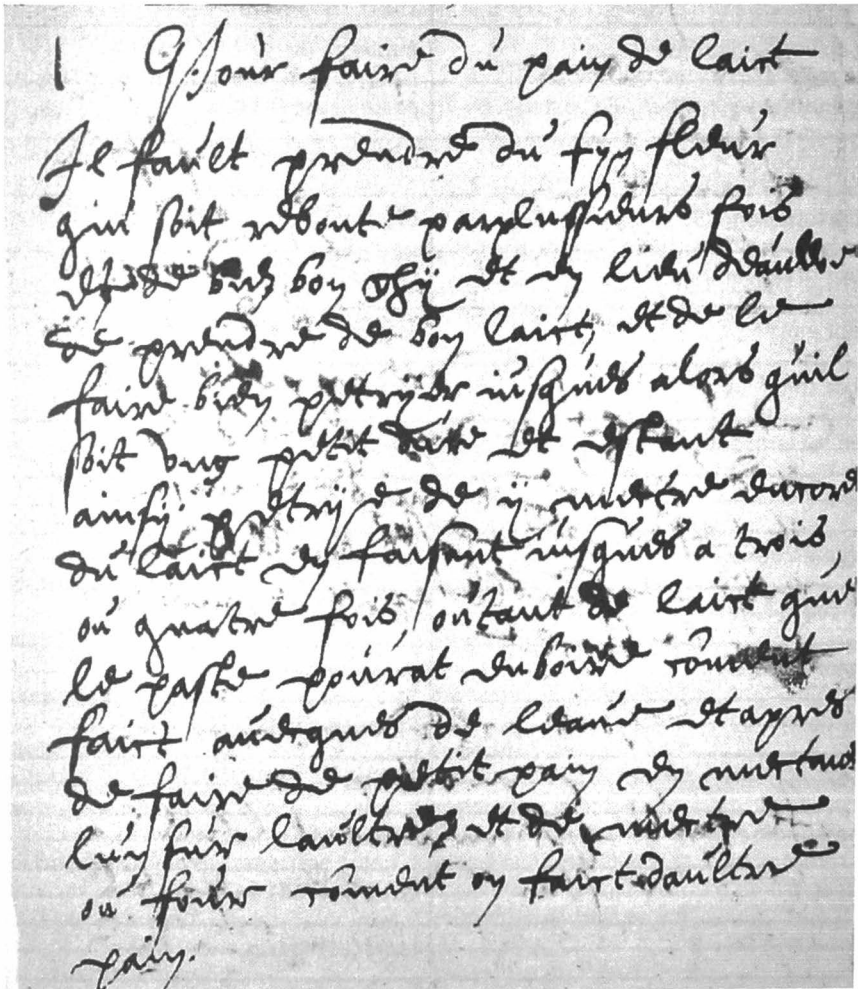 1 Pour faire du pain de laict
Il fault prendre du fyn fleur
qui soit reboute par plussieurs fois
de bledz bon et en lieu
de prendre de bon laict, et de le
faire bien petryer jusques alors quil
soit ung petit et estant
ainsy petryé de ÿ mectre encore
du laict en faisant jusques a trois,
ou quatre fois, oútant de laict que
le paste pourat enboire coment
faict avecques de leaue et apres
de faire de petit pain en mectant
luy sur laultre et de mectre
ou four coment on faict daultre
pain.